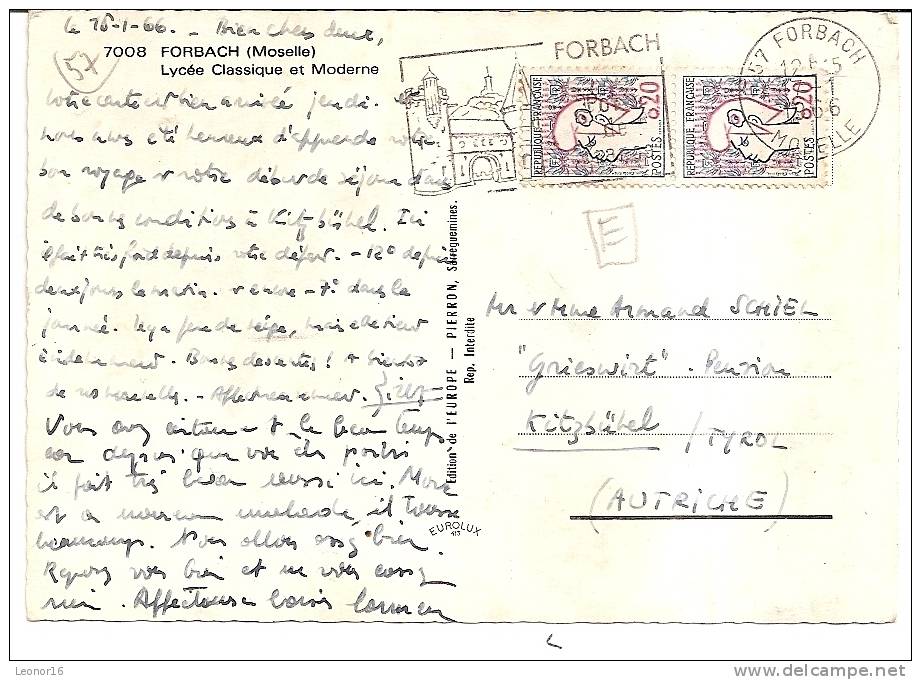 le 15-1-66. - Bien chers deux,
7008 FORBACH (Moselle)
Lycée Classique et Moderne
57
votre carte est bien arrivée jeudi.
nous avons été heureux d'apprendre votre
bon voyage et votre début de séjour dans
de bonnes conditions à Kitzbühel. Ici
il fait très froid depuis votre départ. -12° depuis
deux jours le matin. et encore -7° dans la
journée. Il y a peu de neige, mais elle tient
évidemment. Bonnes descentes! A bientôt
de vos nouvelles. - Affectueusement.
Vous avez certainement le beau temps
car depuis que vous êtes partis
il fait très beau aussi ici.
est à nouveau malade, il tousse
beaucoup. Nous allons assez bien.
Reposez vous bien et ne vous cassez
rien. Affectueux baisers
Edition de l'EUROPE — PIERRON, Sarreguemines.
Rep. Interdite
EUROLUX
413
FORBACH
57 FORBACH
MOSELLE
REPUBLIQUE FRANÇAISE
0,20
POSTES
REPUBLIQUE FRANÇAISE
0,20
POSTES
E
Mr et Mme Armand SCHIEL
"Grieswirt" - Pension
Kitzbühel / TYROL
(AUTRICHE)
Leonor16
www.delcampe.net